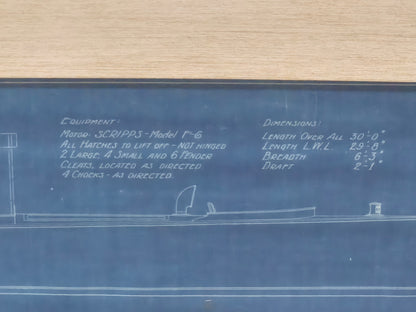 EQUIPMENT:
MOTOR: SCRIPPS - MODEL F-6
ALL HATCHES TO LIFT OFF - NOT HINGED
2 LARGE, 4 SMALL AND 6 FENDER
CLEATS, LOCATED AS DIRECTED.
4 CHOCKS - AS DIRECTED.
DIMENSIONS:
LENGTH OVER ALL 30'-0"
LENGTH L.W.L. 29'-8"
BREADTH 6'-3"
DRAFT 2'-1"